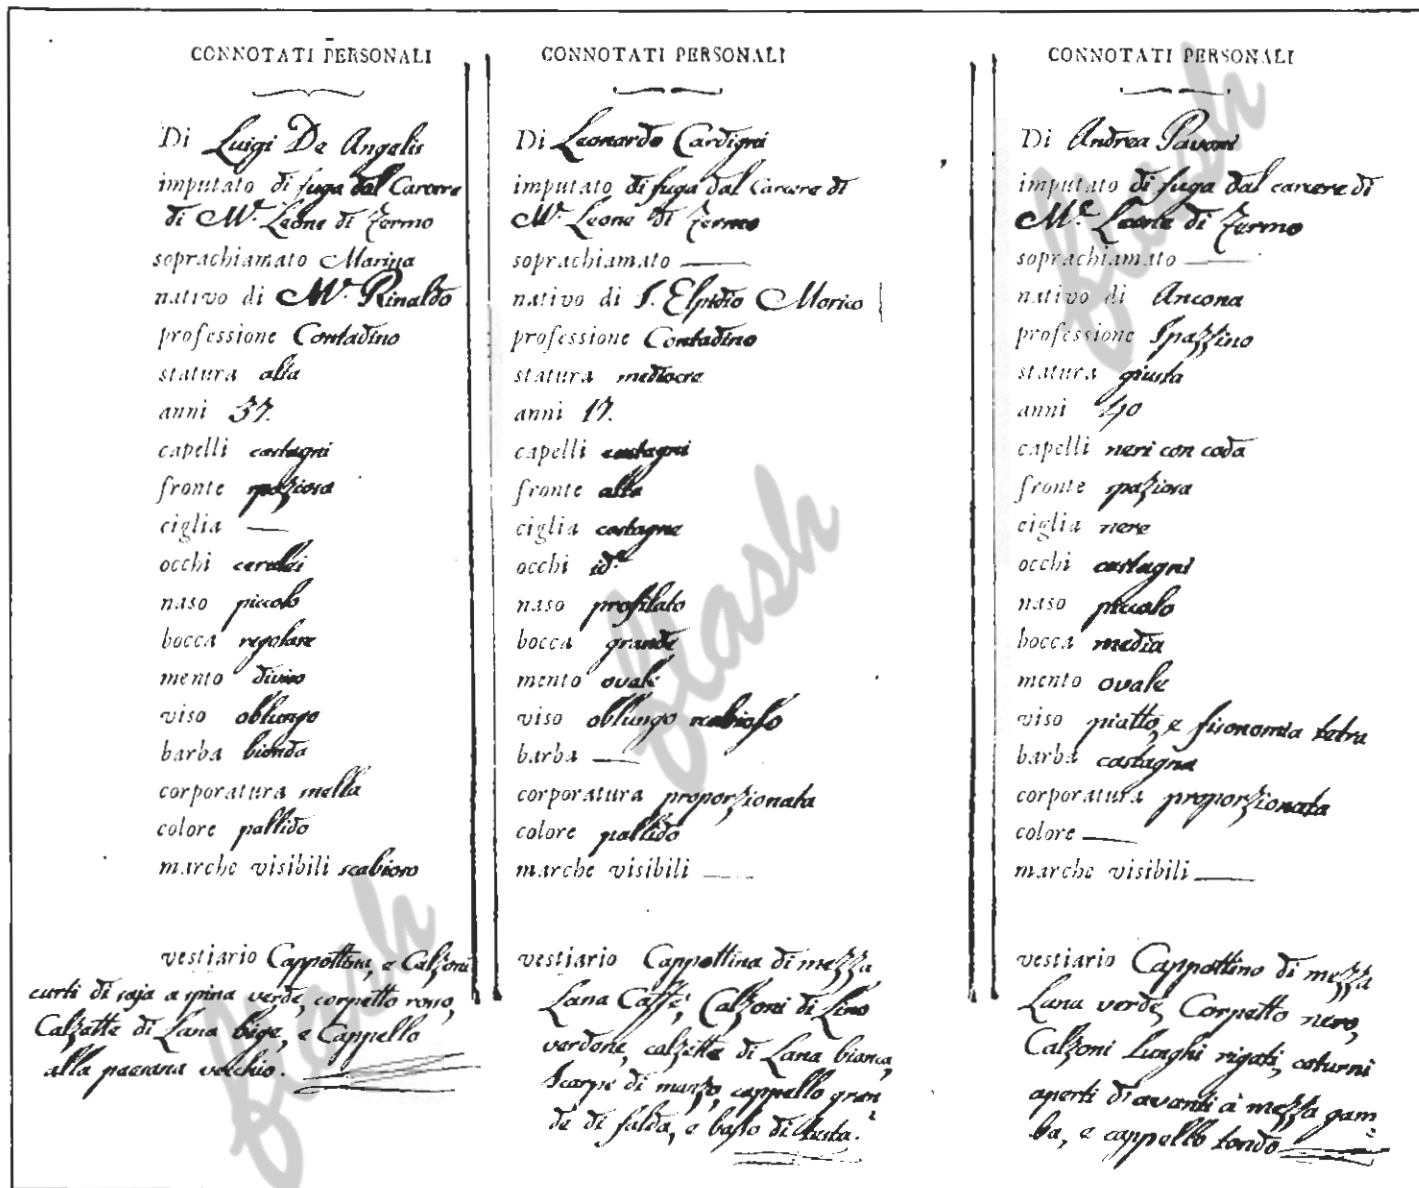 CONNOTATI PERSONALI
Di Luigi De Angelis
imputato di fuga dal Carcere
di M.e Leone di Fermo
soprachiamato Marina
nativo di M.e Rinaldo
professione Contadino
statura alta
anni 37.
capelli castagni
fronte spaziosa
ciglia —
occhi cerulei
naso piccolo
bocca regolare
mento diviso
viso oblungo
barba bionda
corporatura snella
colore pallido
marche visibili scabioso
vestiario Cappottina, e Calzoni
curti di saja a spina verde, corpetto rosso,
Calzette di Lana bige, e Cappello
alla paesana vecchio.
CONNOTATI PERSONALI
Di Leonardo Cardigni
imputato di fuga dal Carcere di
M.e Leone di Fermo
soprachiamato —
nativo di S. Elpidio Morico
professione Contadino
statura mediocre
anni 17.
capelli castagni
fronte alta
ciglia castagne
occhi id.e
naso profilato
bocca grande
mento ovale
viso oblungo scabioso
barba —
corporatura proporzionata
colore pallido
marche visibili —
vestiario Cappottina di mezza
Lana Caffè, Calzoni di Lino
verdone, calzette di Lana bianca,
Scarpe di manzo, cappello gran
de di falda, e basso di testa.
CONNOTATI PERSONALI
Di Andrea Pavoni
imputato di fuga dal carcere di
M.e Leone di Fermo
soprachiamato —
nativo di Ancona
professione Spazzino
statura giusta
anni 40
capelli neri con coda
fronte spaziosa
ciglia nere
occhi castagni
naso piccolo
bocca media
mento ovale
viso piatto, e fisonomia tetra
barba castagna
corporatura proporzionata
colore —
marche visibili —
vestiario Cappottino di mezza
Lana verde, Corpetto nero,
Calzoni Lunghi rigati, coturni
aperti d'avanti à mezza gam
ba, e cappello tondo
flash
flash
flash